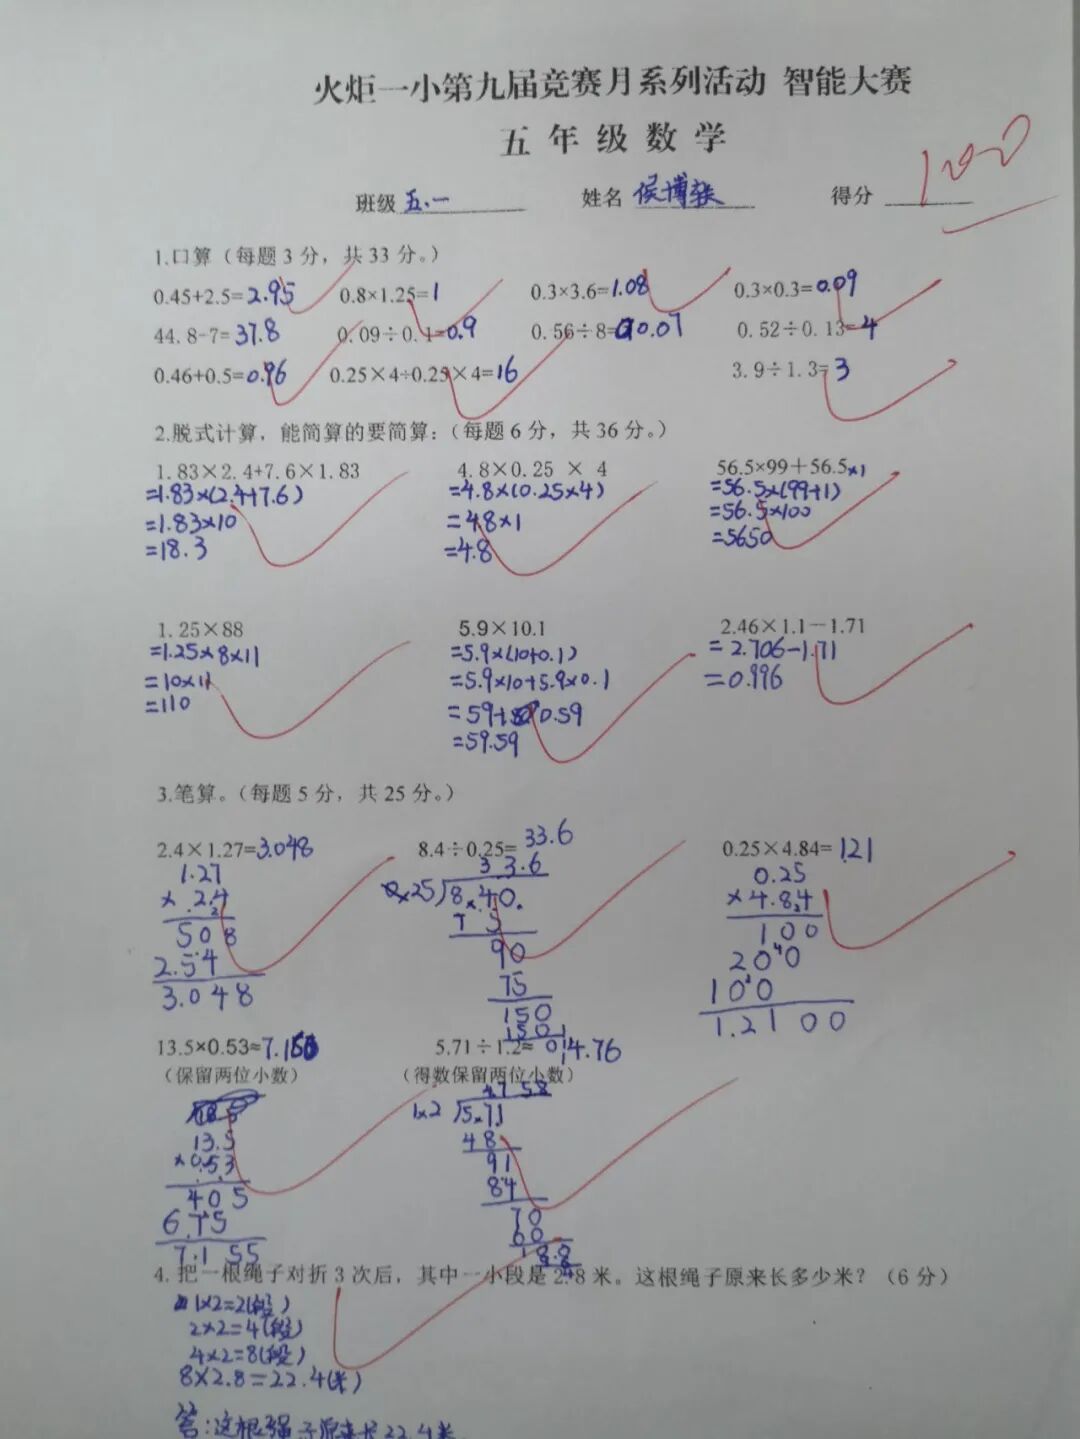 火炬一小第九届竞赛月系列活动 智能大赛
五 年 级 数 学
100
班级 五.一 姓名 侯博轶 得分
1.口算（每题3分，共33分。）
0.45+2.5=2.95 0.8×1.25=1 0.3×3.6=1.08 0.3×0.3=0.09
44.8-7=37.8 0.09÷0.1=0.9 0.56÷8=0.07 0.52÷0.13=4
0.46+0.5=0.96 0.25×4÷0.25×4=16 3.9÷1.3=3
2.脱式计算，能简算的要简算：（每题6分，共36分。）
1.83×2.4+7.6×1.83 4.8×0.25 × 4 56.5×99＋56.5×1
=1.83×(2.4+7.6) =4.8×(0.25×4) =56.5×(99+1)
=1.83×10 =4.8×1 =56.5×100
=18.3 =4.8 =5650
1.25×88 5.9×10.1 2.46×1.1－1.71
=1.25×8×11 =5.9×(10+0.1) =2.706-1.71
=10×11 =5.9×10+5.9×0.1 =0.996
=110 =59+0.59
=59.59
3.笔算。（每题5分，共25分。）
2.4×1.27=3.048 8.4÷0.25=33.6 0.25×4.84=1.21
1.27 33.6 0.25
×2.4 0.25 8.40 ×4.84
508 75 100
2.54 90 200
3.048 75 100
150 1.2100
150
0
13.5×0.53≈7.16 5.71÷1.2≈4.76
（保留两位小数） （得数保留两位小数）
13.5 4.758
×0.53 1.2 5.71
405 48
6.75 91
7.155 84
70
60
4.把一根绳子对折3次后，其中一小段是2.8米。这根绳子原来长多少米？（6分）
1×2=2(段)
2×2=4(段)
4×2=8(段)
8×2.8=22.4(米)
答:这根绳子原来长22.4米